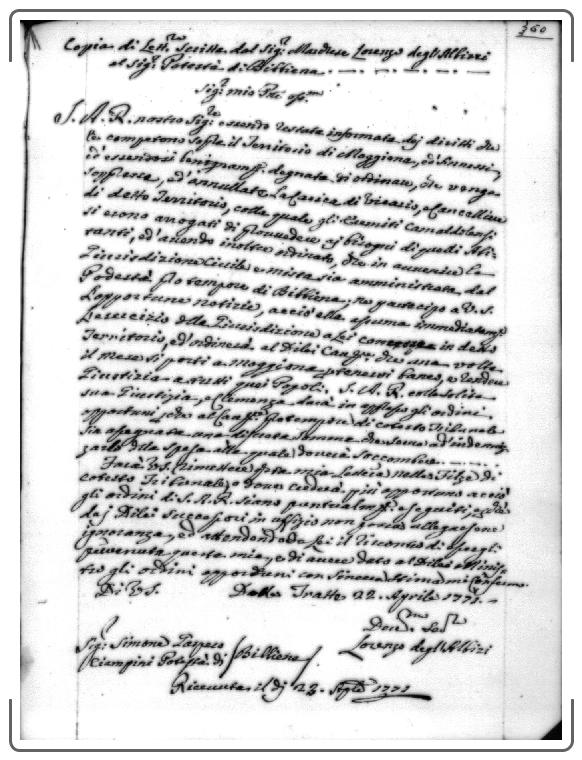 360
Copia di Lett.ra Scritta dal Sig.r Marchese Lorenzo degl'Albizi
al Sig.r Potestà di Bibbiena
Sig.r mio
S. A. R. nostro Sig.re essendo restata informata dei diritti che
le competono sopra il Territorio di Moggiona, ed annessi,
ed essendosi benignam.te degnata di ordinare, che venga
soppressa, ed annullata la Carica di Vicario, e Cancelliere
di detto Territorio, colla quale gli Eremiti Camaldolensi
si erono arrogati di provvedere ai bisogni di quelli Abi-
tanti, ed avendo inoltre ordinato, che in avvenire la
Giurisdizione Civile e mista sia amministrata dal
Podestà p. tempore di Bibbiena; ne partecipo a V.S.
l'opportune notizie, acciò ella assuma immediatam.te
l'esercizio della Giurisdizione a Lei in detto
Territorio, ed ordinerà al Dilei Canc.re che una volta
il mese si porti a Moggiona, a tenervi banco, e rendere
Giustizia a tutti quei Popoli. S. A. R. colla solita
sua Giustizia, e Clemenza darà in appresso gli ordini
opportuni, che al Canc.re p. tempore di cotesto Tribunale
sia assegnata una discreta somma da servire ad indenniz-
zarlo della spesa alla quale dovrà soccombere.
Farà V.S. rimettere questa mia Lettera nelle Filze di
cotesto Tribunale, o dove crederà più opportuno acciò
gli ordini di S. A. R. siano puntualm.te eseguiti, e
dai Dilei Successori in uffizio non possa allegarsene
ignoranza, ed attendendo da Lei il riscontro di essergli
pervenuta questa mia, e di avere dato al Dilei Minis-
tro gli ordini opportuni con sincera stima mi confermo
Di V.S. Dalle Tratte 22. Aprile 1771.
Sig.r Simone
Ciampini Potestà di Bibbiena
Lorenzo degl'Albizi
Ricevuta il dì 23. 1771